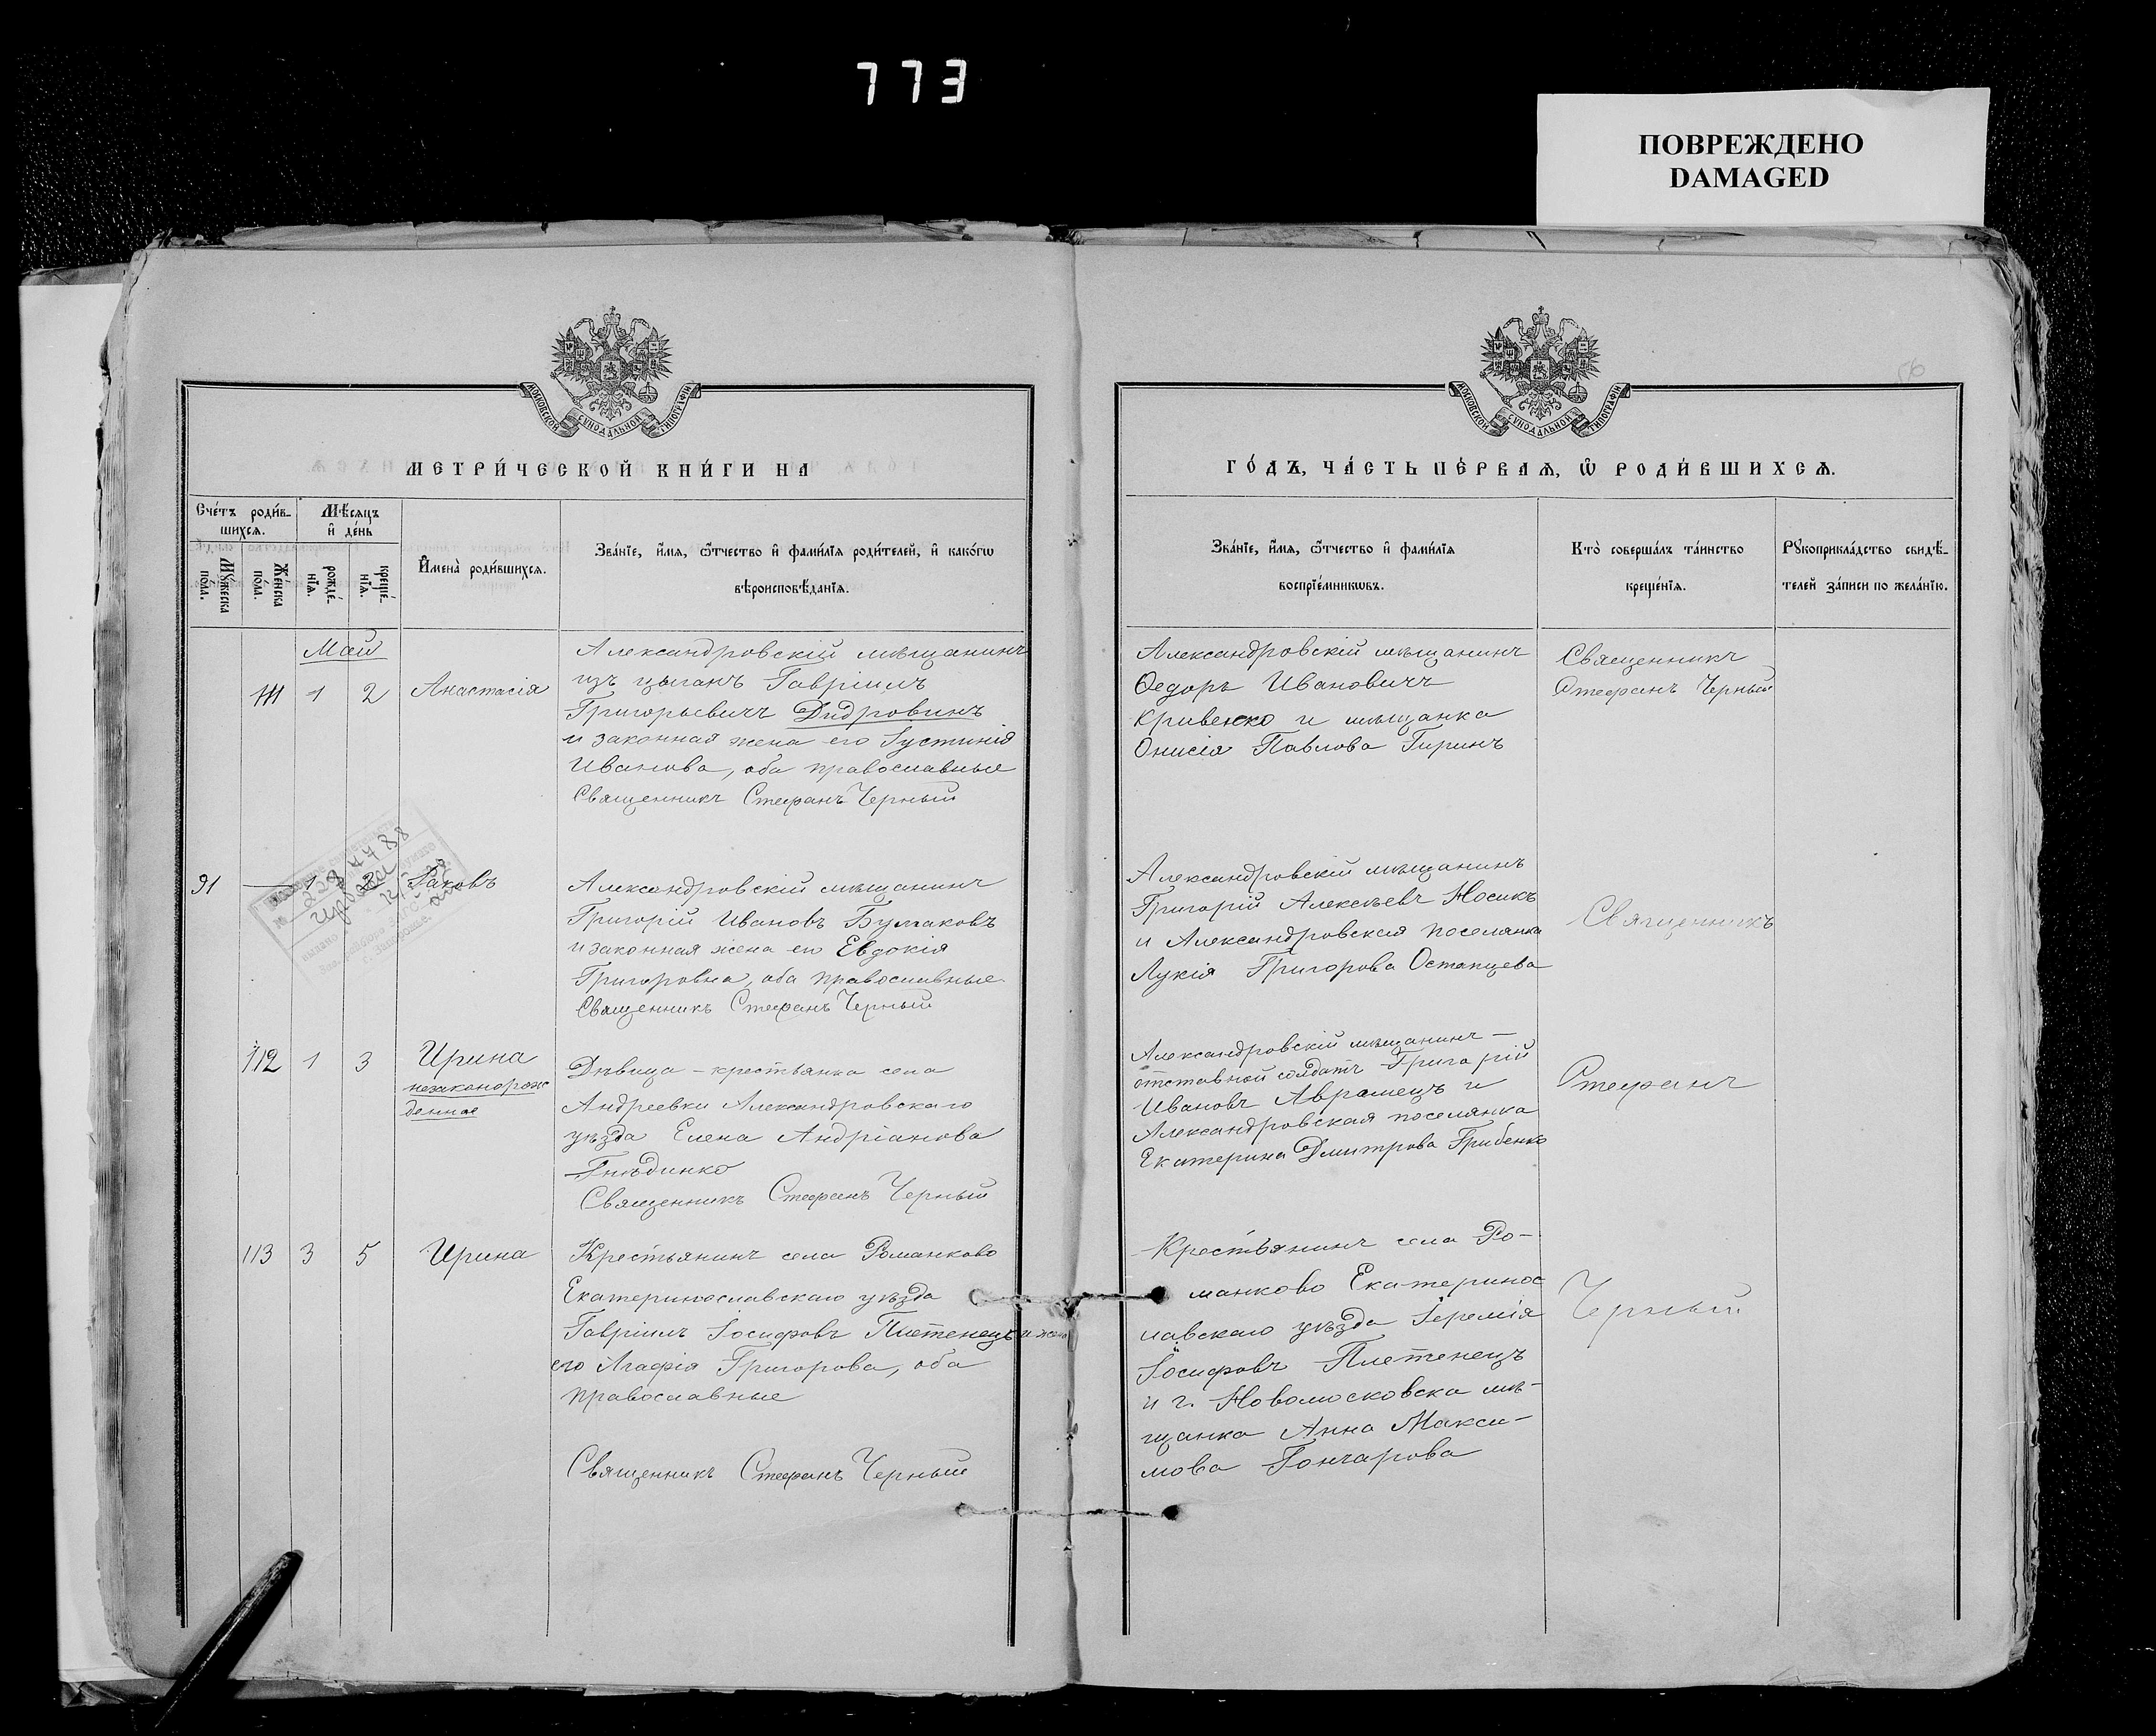 773
ПОВРЕЖДЕНО
DAMAGED
56
МОСКОВСКОЙ СѴНОДАЛЬНОЙ ТИПОГРАФІИ
МЕТРИ́ЧЕСКОЙ КНИ́ГИ НА
Сче́тъ роди́в-
шихсѧ.
Мѣ́сѧцъ
и҆ де́нь
Мꙋ́жеска
по́ла.
Же́нска
по́ла.
рожде́-
нїѧ.
креще́-
нїѧ.
И҆мена̀ роди́вшихсѧ.
Зва́нїе, и҆́мѧ, ѻ҆́тчество и҆ фами́лїѧ роди́телей, и҆ како́гѡ
вѣроисповѣ́данїѧ.
Май
111 1 2 Анастасія
Александровскій мѣщанинъ
изъ цыганъ Гавріилъ
Григорьевичъ Дидровинъ
и законная жена его Іустинія
Иванова, оба православные
Священникъ Стефанъ Черный
91 — 1 2 Іаковъ
Александровскій мѣщанинъ
Григорій Ивановъ Бумаковъ
и законная жена его Евдокія
Григоровна, оба православные
Священникъ Стефанъ Черный
112 1 3 Ирина
незаконорож
денная
Дѣвица - крестьянка села
Андреевки Александровскаго
уѣзда Елена Андріанова
Гнѣдинко
Священникъ Стефанъ Черный
113 3 5 Ирина
Крестьянинъ села Романково
Екатеринославскаго уѣзда
Гавріилъ Іосифовъ Плетенецъ и жена
его Агафія Григорова, оба
православные
Священникъ Стефанъ Черный
МОСКОВСКОЙ СѴНОДАЛЬНОЙ ТИПОГРАФІИ
ГО́ДЪ, ЧА́СТЬ ПЕ́РВАѦ, Ѽ РОДИ́ВШИХСѦ.
Зва́нїе, и҆́мѧ, ѻ҆́тчество и҆ фами́лїѧ
воспрїе́мникѡвъ.
Кто̀ соверша́лъ та́инство
креще́нїѧ.
Рꙋкоприкла́дство свидѣ́-
телей за́писи по жела́нїю.
Александровскій мѣщанинъ
Ѳедоръ Ивановичъ
Кривенко и мѣщанка
Онисія Павлова Гиринъ
Священникъ
Стефанъ Черный
Александровскій мѣщанинъ
Григорій Алексѣевъ Носикъ
и Александровская поселянка
Лукія Григорова Остапцева
Священникъ
Александровскій мѣщанинъ —
отставной солдатъ Григорій
Ивановъ Аврамецъ и
Александровская поселянка
Екатерина Дмитрова Грибенко
Стефанъ
Крестьянинъ села Ро-
манково Екатеринос
лавскаго уѣзда Іеремія
Іосифовъ Плетенецъ
и г. Новомосковска мѣ-
щанка Анна Макси-
мова Гончарова
Черный